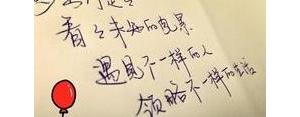 看看未知的
遇见不一样的人
领略不一样的生活